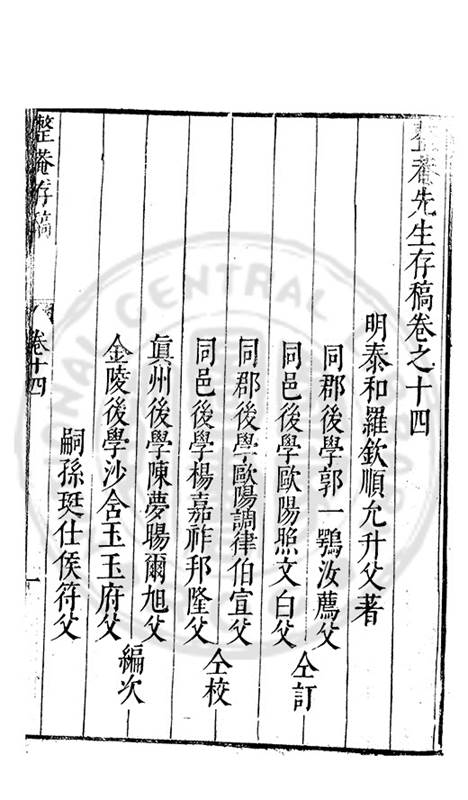 整菴先生存稿卷之十四
明泰和羅欽順允升父著
同郡後學郭一鶚汝薦父
同邑後學歐陽照文白父
仝訂
同郡後學歐陽調律伯宣父
同邑後學楊嘉祚邦隆父
仝校
眞州後學陳夢暘爾旭父
金陵後學沙舍玉玉府父
編次
嗣孫珽仕侯符父
整菴存稿
卷十四
一
CENTRAL